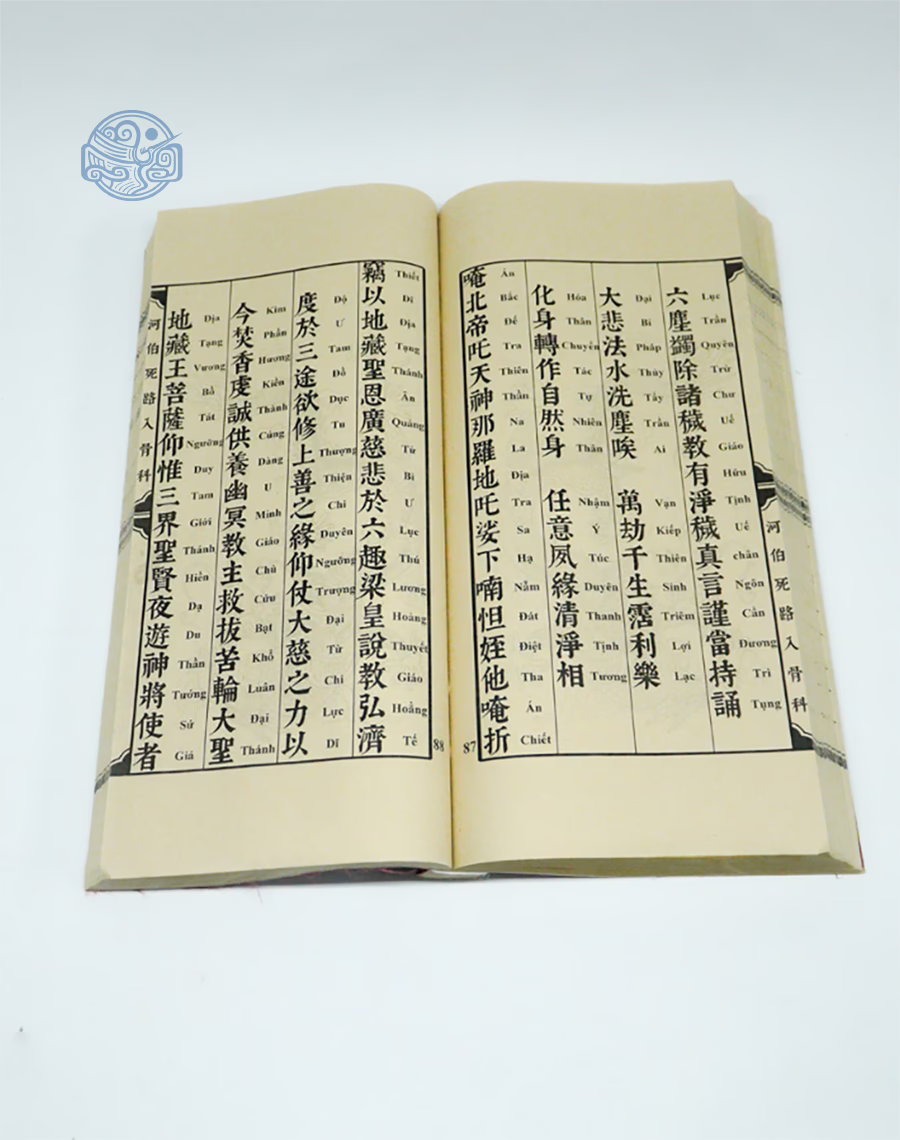 六塵蠲除諸穢教有淨穢真言謹當持誦
Lục Trần Quyên Trừ Chư Uế Giáo Hữu Tịnh Uế chân Ngôn Cẩn Đương Trì Tụng
大悲法水洗塵唉 萬劫千生霑利樂
Đại Bi Pháp Thủy Tẩy Trần Ai Vạn Kiếp Thiên Sinh Triêm Lợi Lạc
化身轉作自然身 任意夙緣清淨相
Hóa Thân Chuyển Tác Tự Nhiên Thân Nhậm Ý Túc Duyên Thanh Tịnh Tương
唵北帝吒天神那羅地吒娑下喃怛姪他唵折
Án Bắc Đế Tra Thiên Thần Na La Địa Tra Sa Hạ Nẵm Đát Điệt Tha Án Chiết
河伯死路入骨科
87
竊以地藏聖恩廣慈悲於六趣梁皇說教弘濟
Thiết Dĩ Địa Tạng Thánh Ân Quảng Từ Bi Ư Lục Thú Lương Hoàng Thuyết Giáo Hoằng Tế
度於三途欲修上善之緣仰仗大慈之力以
Độ Ư Tam Đồ Dục Tu Thượng Thiện Chi Duyên Ngưỡng Trượng Đại Từ Chi Lực Dĩ
今焚香虔誠供養幽冥教主救拔苦輪大聖
Kim Phần Hương Kiền Thành Cúng Dàng U Minh Giáo Chủ Cứu Bạt Khổ Luân Đại Thánh
地藏王菩薩仰惟三界聖賢夜遊神將使者
Địa Tạng Vương Bồ Tát Ngưỡng Duy Tam Giới Thánh Hiền Dạ Du Thần Tướng Sứ Giả
河伯死路入骨科
88